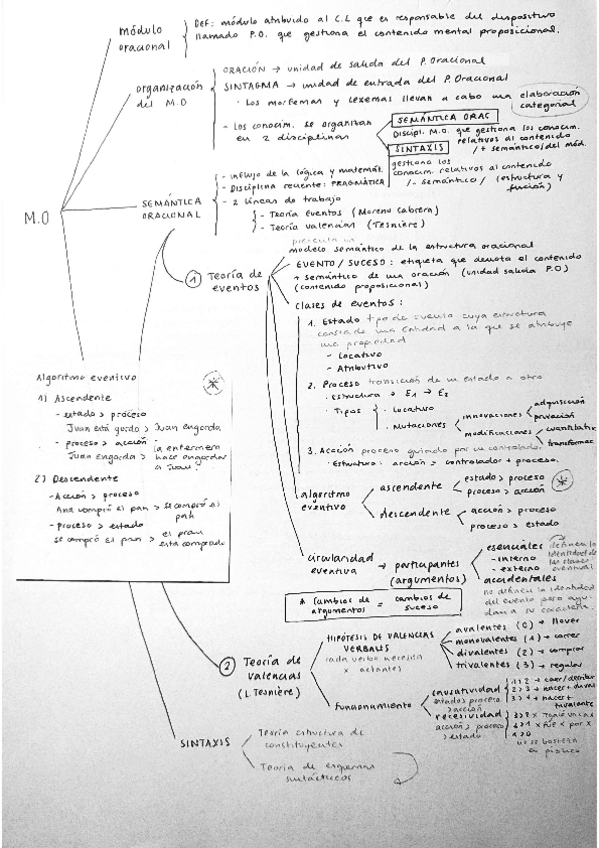 M.O
módulo oracional
Def: módulo atribuido al C.L que es responsable del dispositivo
llamado P.O. que gestiona el contenido mental proposicional.
organización del M.O
ORACIÓN → unidad de salida del P. Oracional
SINTAGMA → unidad de entrada del P. Oracional
· Los morfemas y lexemas llevan a cabo una elaboración categorial
- Los conocim. se organizan en 2 disciplinas
SEMÁNTICA ORAC
Discipl. M.O. que gestiona los conocim.
relativos al contenido
/+ semántico/ del mód.
SINTAXIS
gestiona los
conocim. relativos al contenido
/- semántico/ (estructura y función)
SEMÁNTICA ORACIONAL
- Influjo de la lógica y matemát.
- Disciplina reciente: PRAGMÁTICA
- 2 líneas de trabajo
- Teoría eventos (Moreno Cabrera)
- Teoría valencias (Tesnière)
① Teoría de eventos
presenta un
modelo semántico de la estructura oracional
EVENTO / SUCESO: etiqueta que denota el contenido
+ semántico de una oración (unidad salida P.O)
(contenido proposicional)
clases de eventos:
1. Estado tipo de evento cuya estructura
consta de una entidad a la que se atribuye
una propiedad
- Locativo
- Atributivo
2. Proceso transición de un estado a otro
· Estructura → E1 → E2
· Tipos
· Locativo
· Mutaciones
innovaciones
adquisición
privación
modificaciones
cuantitativ
transformac
3. Acción proceso guiado por un controlador
· Estructura: acción = controlador + proceso.
algoritmo eventivo
ascendente
estado > proceso
proceso > acción
descendente
acción > proceso
proceso > estado
circularidad eventiva → participantes (argumentos)
esenciales
- interno
- externo
definen la
identidad de
las clases
eventual
accidentales
no definen la identidad
del evento pero ayu
dan a su caracteriz.
* Cambios de argumentos = cambios de suceso
Algoritmo eventivo
1) Ascendente
- estado > proceso
Juan está gordo > Juan engorda
- proceso > acción
Juan engorda > la enfermera hace engordar a Juan.
2) Descendente
- Acción > proceso
Ana compró el pan > se compró el pan
- proceso > estado
se compró el pan > el pan está comprado
② Teoría de valencias
(L Tesnière)
HIPÓTESIS DE VALENCIAS VERBALES
cada verbo necesita
x actantes
avalentes (0) → llover
monovalentes (1) → correr
divalentes (2) → comprar
trivalentes (3) → regalar
funcionamiento
causatividad
estado > proceso
> acción
recesividad
acción > proceso
> estado
SINTAXIS
Teoría estructura de constituyentes
Teoría de esquemas sintácticos